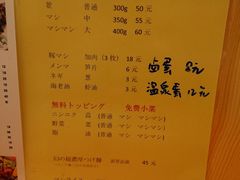 普通 300g 50 元
マシ 中 350g 55 元
マシマシ 大 400g 60 元
豚マシ 加肉 (3 枚) 18 元
メンマ 筍片 6 元
ネギ 葱 3 元
海老油 蝦油 3 元
鹵蛋 8元
温泉蛋 12元
無料トッピング 免費小菜
ニンニク 蒜 (普通 マシ マシマシ)
野菜 菜 (普通 マシ マシマシ)
脂 油 (普通 マシ マシマシ)
45 元